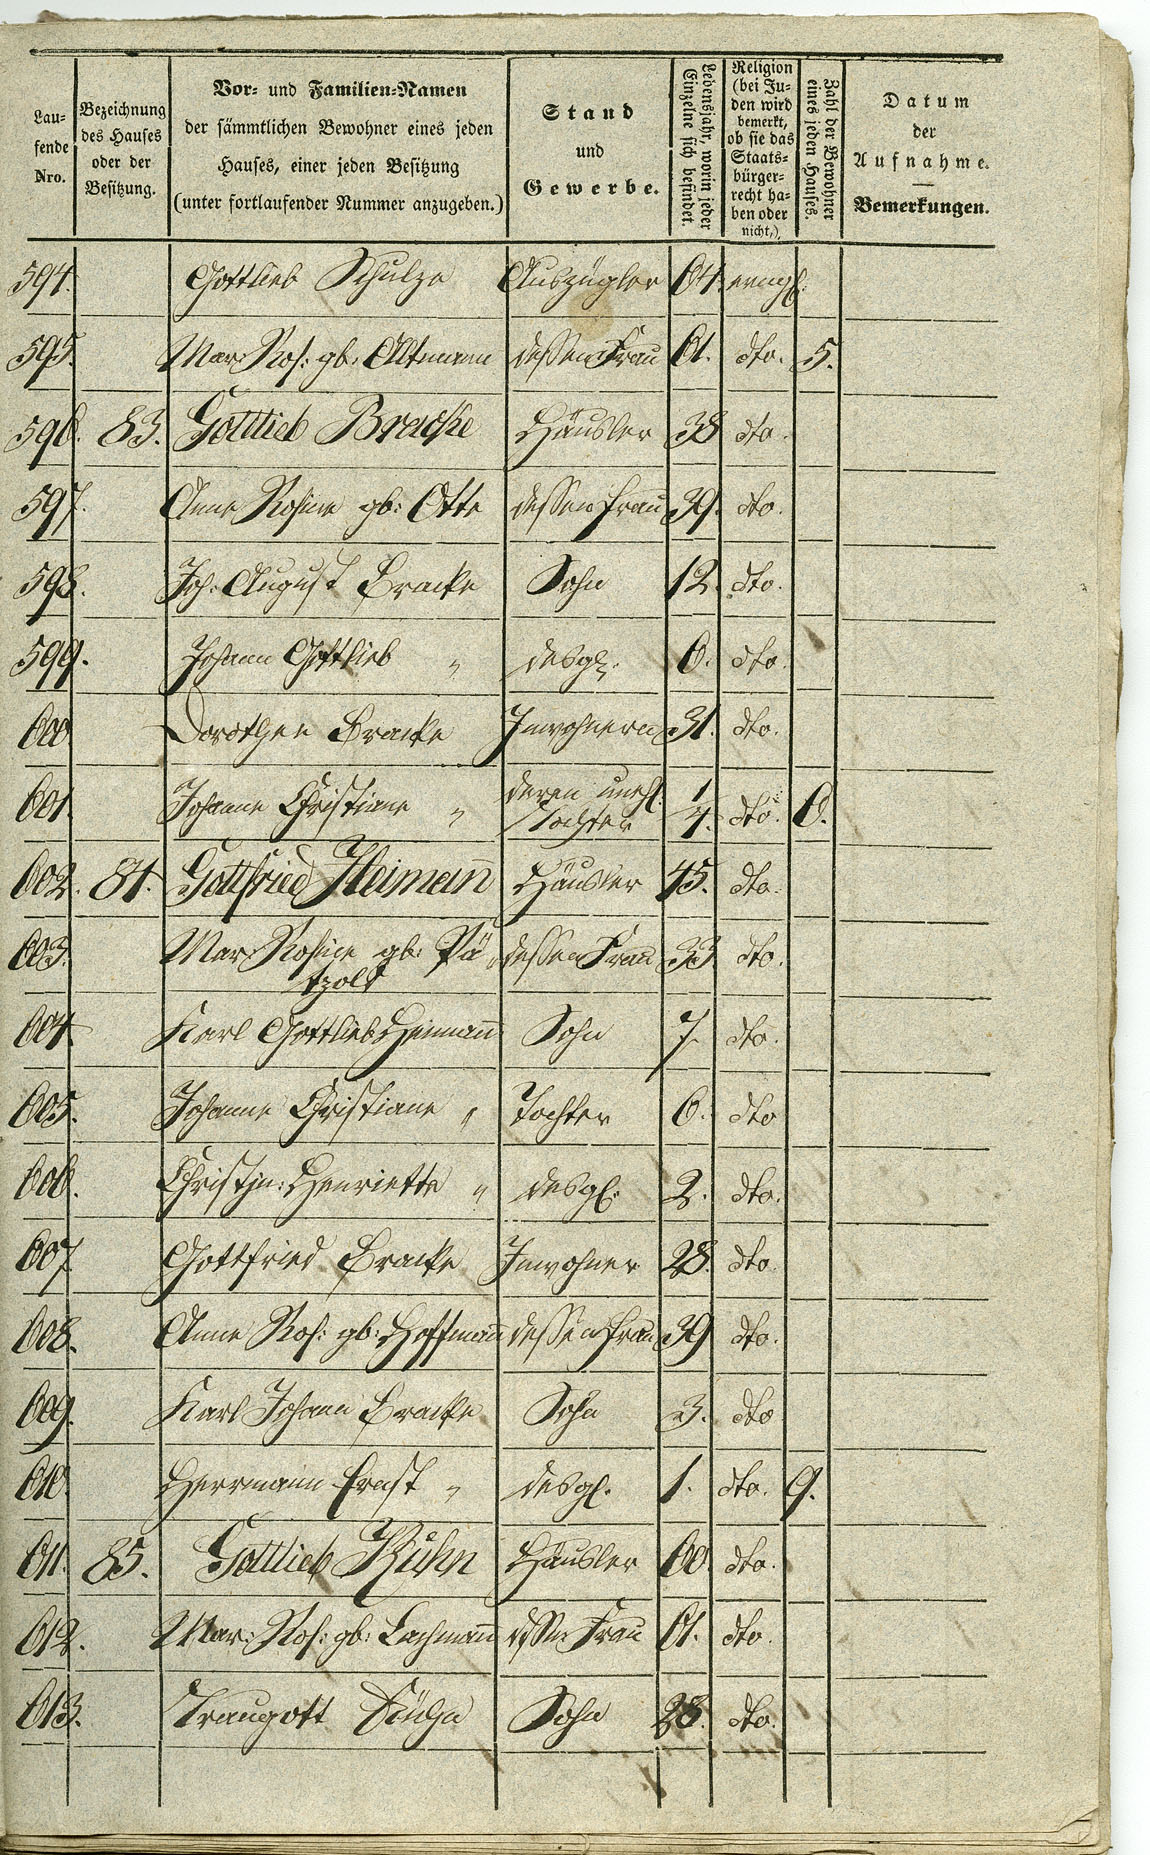 Lau-
fende
Nro.
Bezeichnung
des Hauses
oder der
Besitzung.
Vor- und Familien-Namen
der sämmtlichen Bewohner eines jeden
Hauses, einer jeden Besitzung
(unter fortlaufender Nummer anzugeben.)
Stand
und
Gewerbe.
Lebensjahr, worin jeder
Einzelne sich befindet.
Religion
(bei Ju-
den wird
bemerkt,
ob sie das
Staats-
bürger-
recht ha-
ben oder
nicht,)
Zahl der Bewohner
eines jeden Hauses.
Datum
der
Aufnahme.
Bemerkungen.
594. Gottlieb Schulze Auszügler 64. evangl.
595. Mar: Ros: gb: Altmann dessen Frau 61. dto. 5.
596. 83. Gottlieb Bracke Häusler 38 dto.
597. Anne Rosine gb: Otto dessen Frau 39. dto.
598. Joh: August Bracke Sohn 12. dto.
599. Johann Gottlieb " desgl. 6. dto.
600 Dorothee Bracke Inwohnerin 31. dto.
601. Johanne Christiane " deren unehl. 1
Tochter 4. dto. 6.
602. 84. Gottfried Heimann Häusler 45. dto.
603. Mar: Rosine gb: Pä- dessen Frau 33 dto.
tzolt
604. Karl Gottlieb Heimann Sohn 7. dto.
605. Johanne Christiane " Tochter 6. dto
606. Christjn: Henriette " desgl. 2. dto.
607 Gottfried Bracke Inwohner 28. dto.
608. Anne Ros: gb: Hoffmann dessen Frau 39 dto.
609. Karl Johann Bracke Sohn 3. dto
610. Herrmann Ernst " desgl. 1. dto. 9.
611. 85. Gottlieb Kühn Häusler 60. dto.
612. Mar: Ros: gb: Lachmann dessen Frau 61. dto.
613. Traugott Kühn Sohn 28. dto.